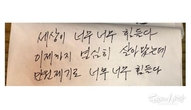 세상이 너무 너무 힘든다
이제까지 열심히 살아왔는데
만만제기로 너무 너무 힘든다